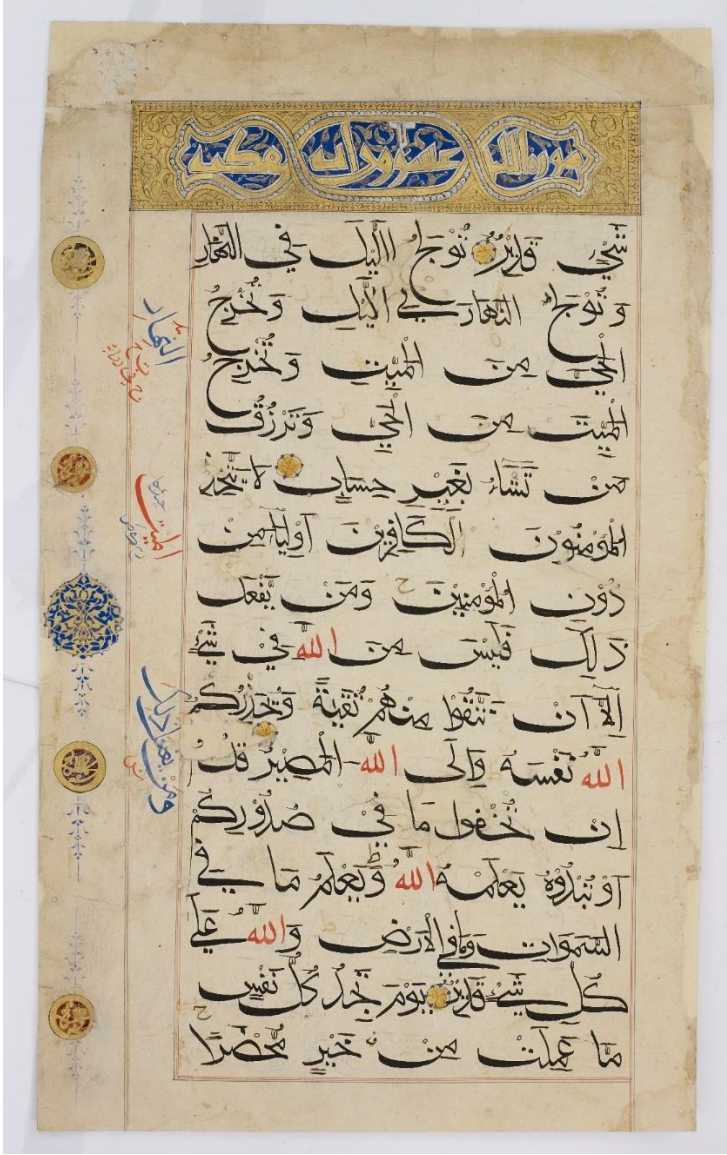 عشرون اية مكية
شَيْءٍ قَدِيرٌ تُوْلِجُ االَّيْلَ فِي النَّهَارِ
وَتُوْلِجُ النَّهَارَ فِي الَّيْلِ وَتُخْرِجُ
الْحَيَّ مِنَ الْمَيِّتِ وَتُخْرِجُ
الْمَيِّتَ مِنَ الْحَيِّ وَتَرْزُقُ
مَنْ تَشَاءُ بِغَيْرِ حِسَابٍ لَا يَتَّخِذِ
الْمُؤْمِنُونَ الْكَافِرِينَ أَوْلِيَاءَ مِنْ
دُوْنِ الْمُؤْمِنِينَ وَمَنْ يَّفْعَلْ
ذَلِكَ فَلَيْسَ مِنَ اللّٰهِ فِي شَيْءٍ
اِلَّا اَنْ تَتَّقُوْا مِنْهُمْ تُقٰيةً وَيُحَذِّرُكُمُ
اللّٰهُ نَفْسَهُ وَاِلَى اللّٰهِ الْمَصِيرُ قُلْ
اِنْ تُخْفُوا مَا فِي صُدُوْرِكُمْ
اَوْ تُبْدُوْهُ يَعْلَمْهُ اللّٰهُ وَيَعْلَمُ مَا فِي
السَّمٰوَاتِ وَمَا فِي الْاَرْضِ وَاللّٰهُ عَلٰى
كُلِّ شَيْءٍ قَدِيْرٌ يَوْمَ تَجِدُ كُلُّ نَفْسٍ
مَا عَمِلَتْ مِنْ خَيْرٍ مُّحْضَرًا
النهار
الميت
ومن يفعل ذلك